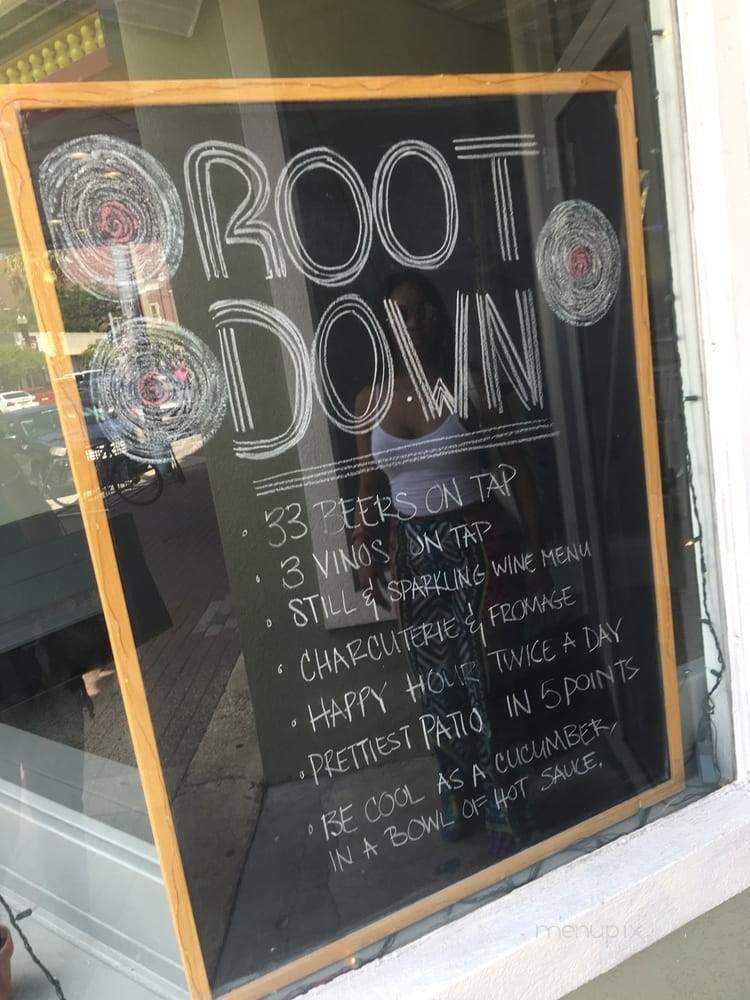 ROOT
DOWN
· 33 BEERS ON TAP
· 3 VINOS ON TAP
· STILL & SPARKLING WINE MENU
· CHARCUTERIE & FROMAGE
· HAPPY HOUR TWICE A DAY
· PRETTIEST PATIO IN 5 POINTS
· BE COOL AS A CUCUMBER,
IN A BOWL OF HOT SAUCE.
menupix